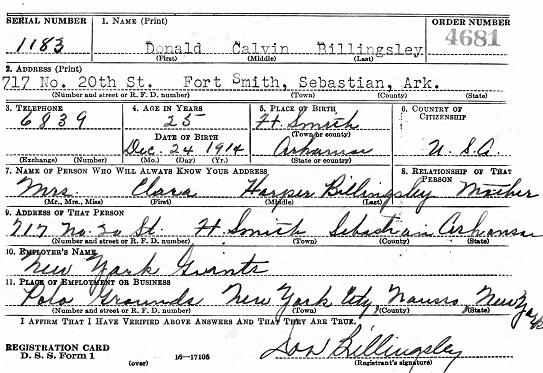 SERIAL NUMBER 1. NAME (Print) ORDER NUMBER
1183 Donald Calvin Billingsley 4681
(First) (Middle) (Last)
2. ADDRESS (Print)
717 No. 20th St. Fort Smith, Sebastian, Ark.
(Number and street or R. F. D. number) (Town) (County) (State)
3. TELEPHONE 4. AGE IN YEARS 5. PLACE OF BIRTH 6. COUNTRY OF CITIZENSHIP
6839 25 Ft. Smith
(Town or county)
DATE OF BIRTH
Dec. 24 1914 Arkansas U.S.A.
(Exchange) (Number) (Mo.) (Day) (Yr.) (State or country)
7. NAME OF PERSON WHO WILL ALWAYS KNOW YOUR ADDRESS 8. RELATIONSHIP OF THAT PERSON
Mrs. Clara Harper Billingsley Mother
(Mr., Mrs., Miss) (First) (Middle) (Last)
9. ADDRESS OF THAT PERSON
717 No. 20 St Ft. Smith Sebastian Arkansas
(Number and street or R. F. D. number) (Town) (County) (State)
10. EMPLOYER'S NAME
New York Giants
11. PLACE OF EMPLOYMENT OR BUSINESS
Polo Grounds New York City, New York
(Number and street or R. F. D. number) (Town) (County) (State)
I AFFIRM THAT I HAVE VERIFIED ABOVE ANSWERS AND THAT THEY ARE TRUE.
REGISTRATION CARD
D. S. S. Form 1 16—17105 Don Billingsley
(over) (Registrant's signature)